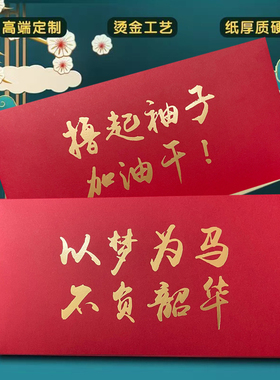 高端定制 烫金工艺 纸厚质硬
撸起袖子
加油干！
以梦为马
不负韶华